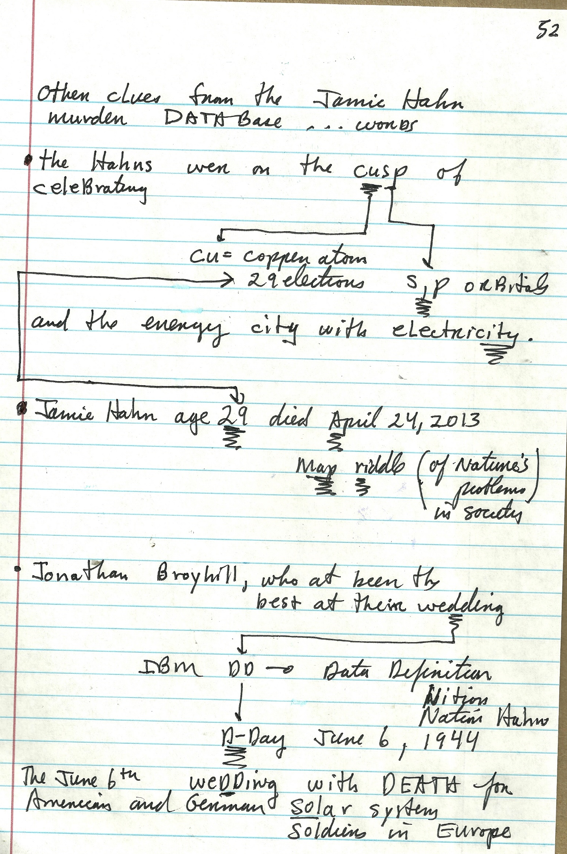 52
Other clues from the Jamie Hahn
murder DATA Base ... words
• the Hahns wer on the cusp of
celeBrating
Cu = copper atom
29 electrons
s, p orBitals
and the energy city with electricity.
• Jamie Hahn age 29 died April 24, 2013
Map riddle (of Nature's
problems
in society)
• Jonathan Broyhill, who at been the
best at their wedding
IBM DD → Data Definition
Nition
Nation Hahn
D-Day June 6, 1944
The June 6th weDDing with DEATH for
American and German solar system
Soldiers in Europe